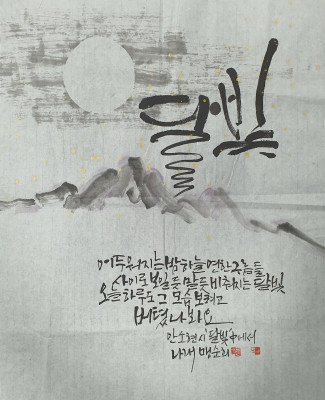 달빛
어두워지는 밤하늘 연한 구름들
사이로 보일듯 말듯 비추이는 달빛
오늘 하루도 그 모습 보려고
버텼나봐요
안소현 시 달빛 中에서
나래 맹순희